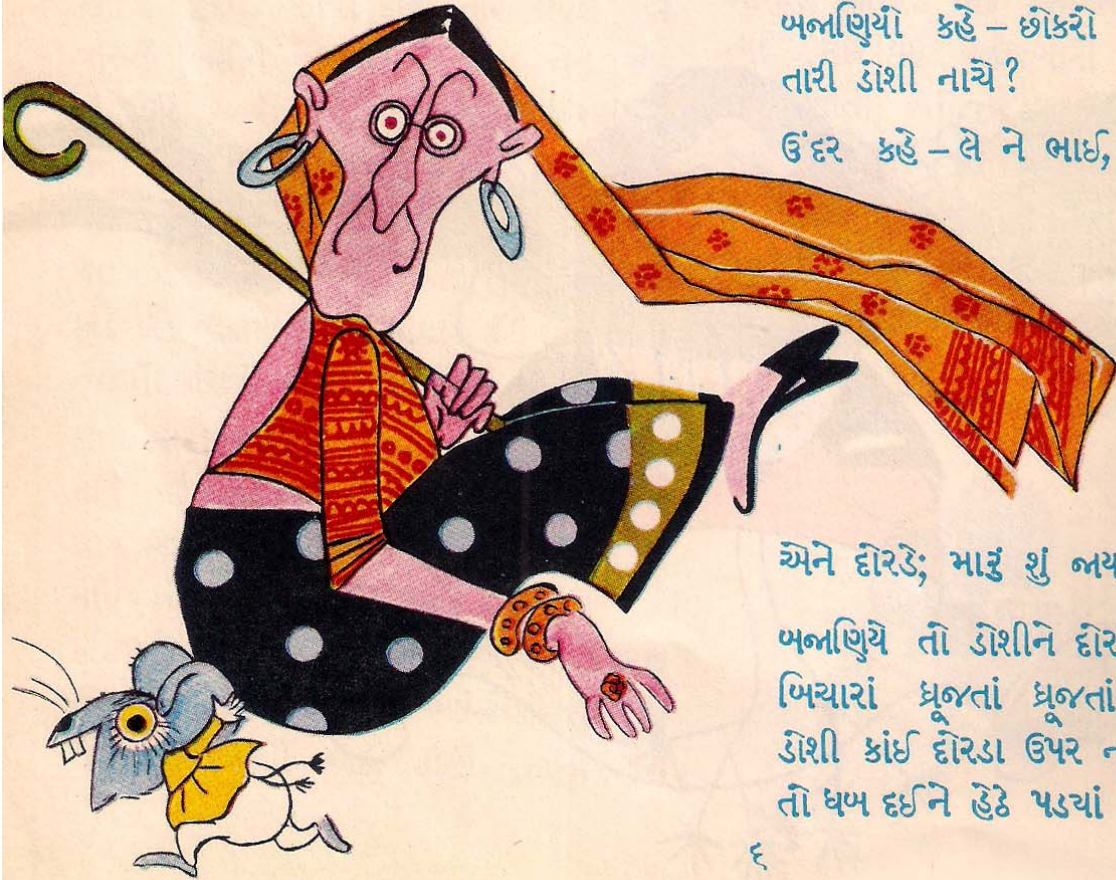 બજાણિયો કહે – છોકરો
તારી ડોશી નાચે?
ઉંદર કહે – લે ને ભાઈ,
એને દોરડે; મારું શું જાય
બજાણિયે તો ડોશીને દોર
બિચારાં ધ્રૂજતાં ધ્રૂજતાં
ડોશી કાંઈ દોરડા ઉપર ન
તો ધબ દઈને હેઠે પડયાં
૬